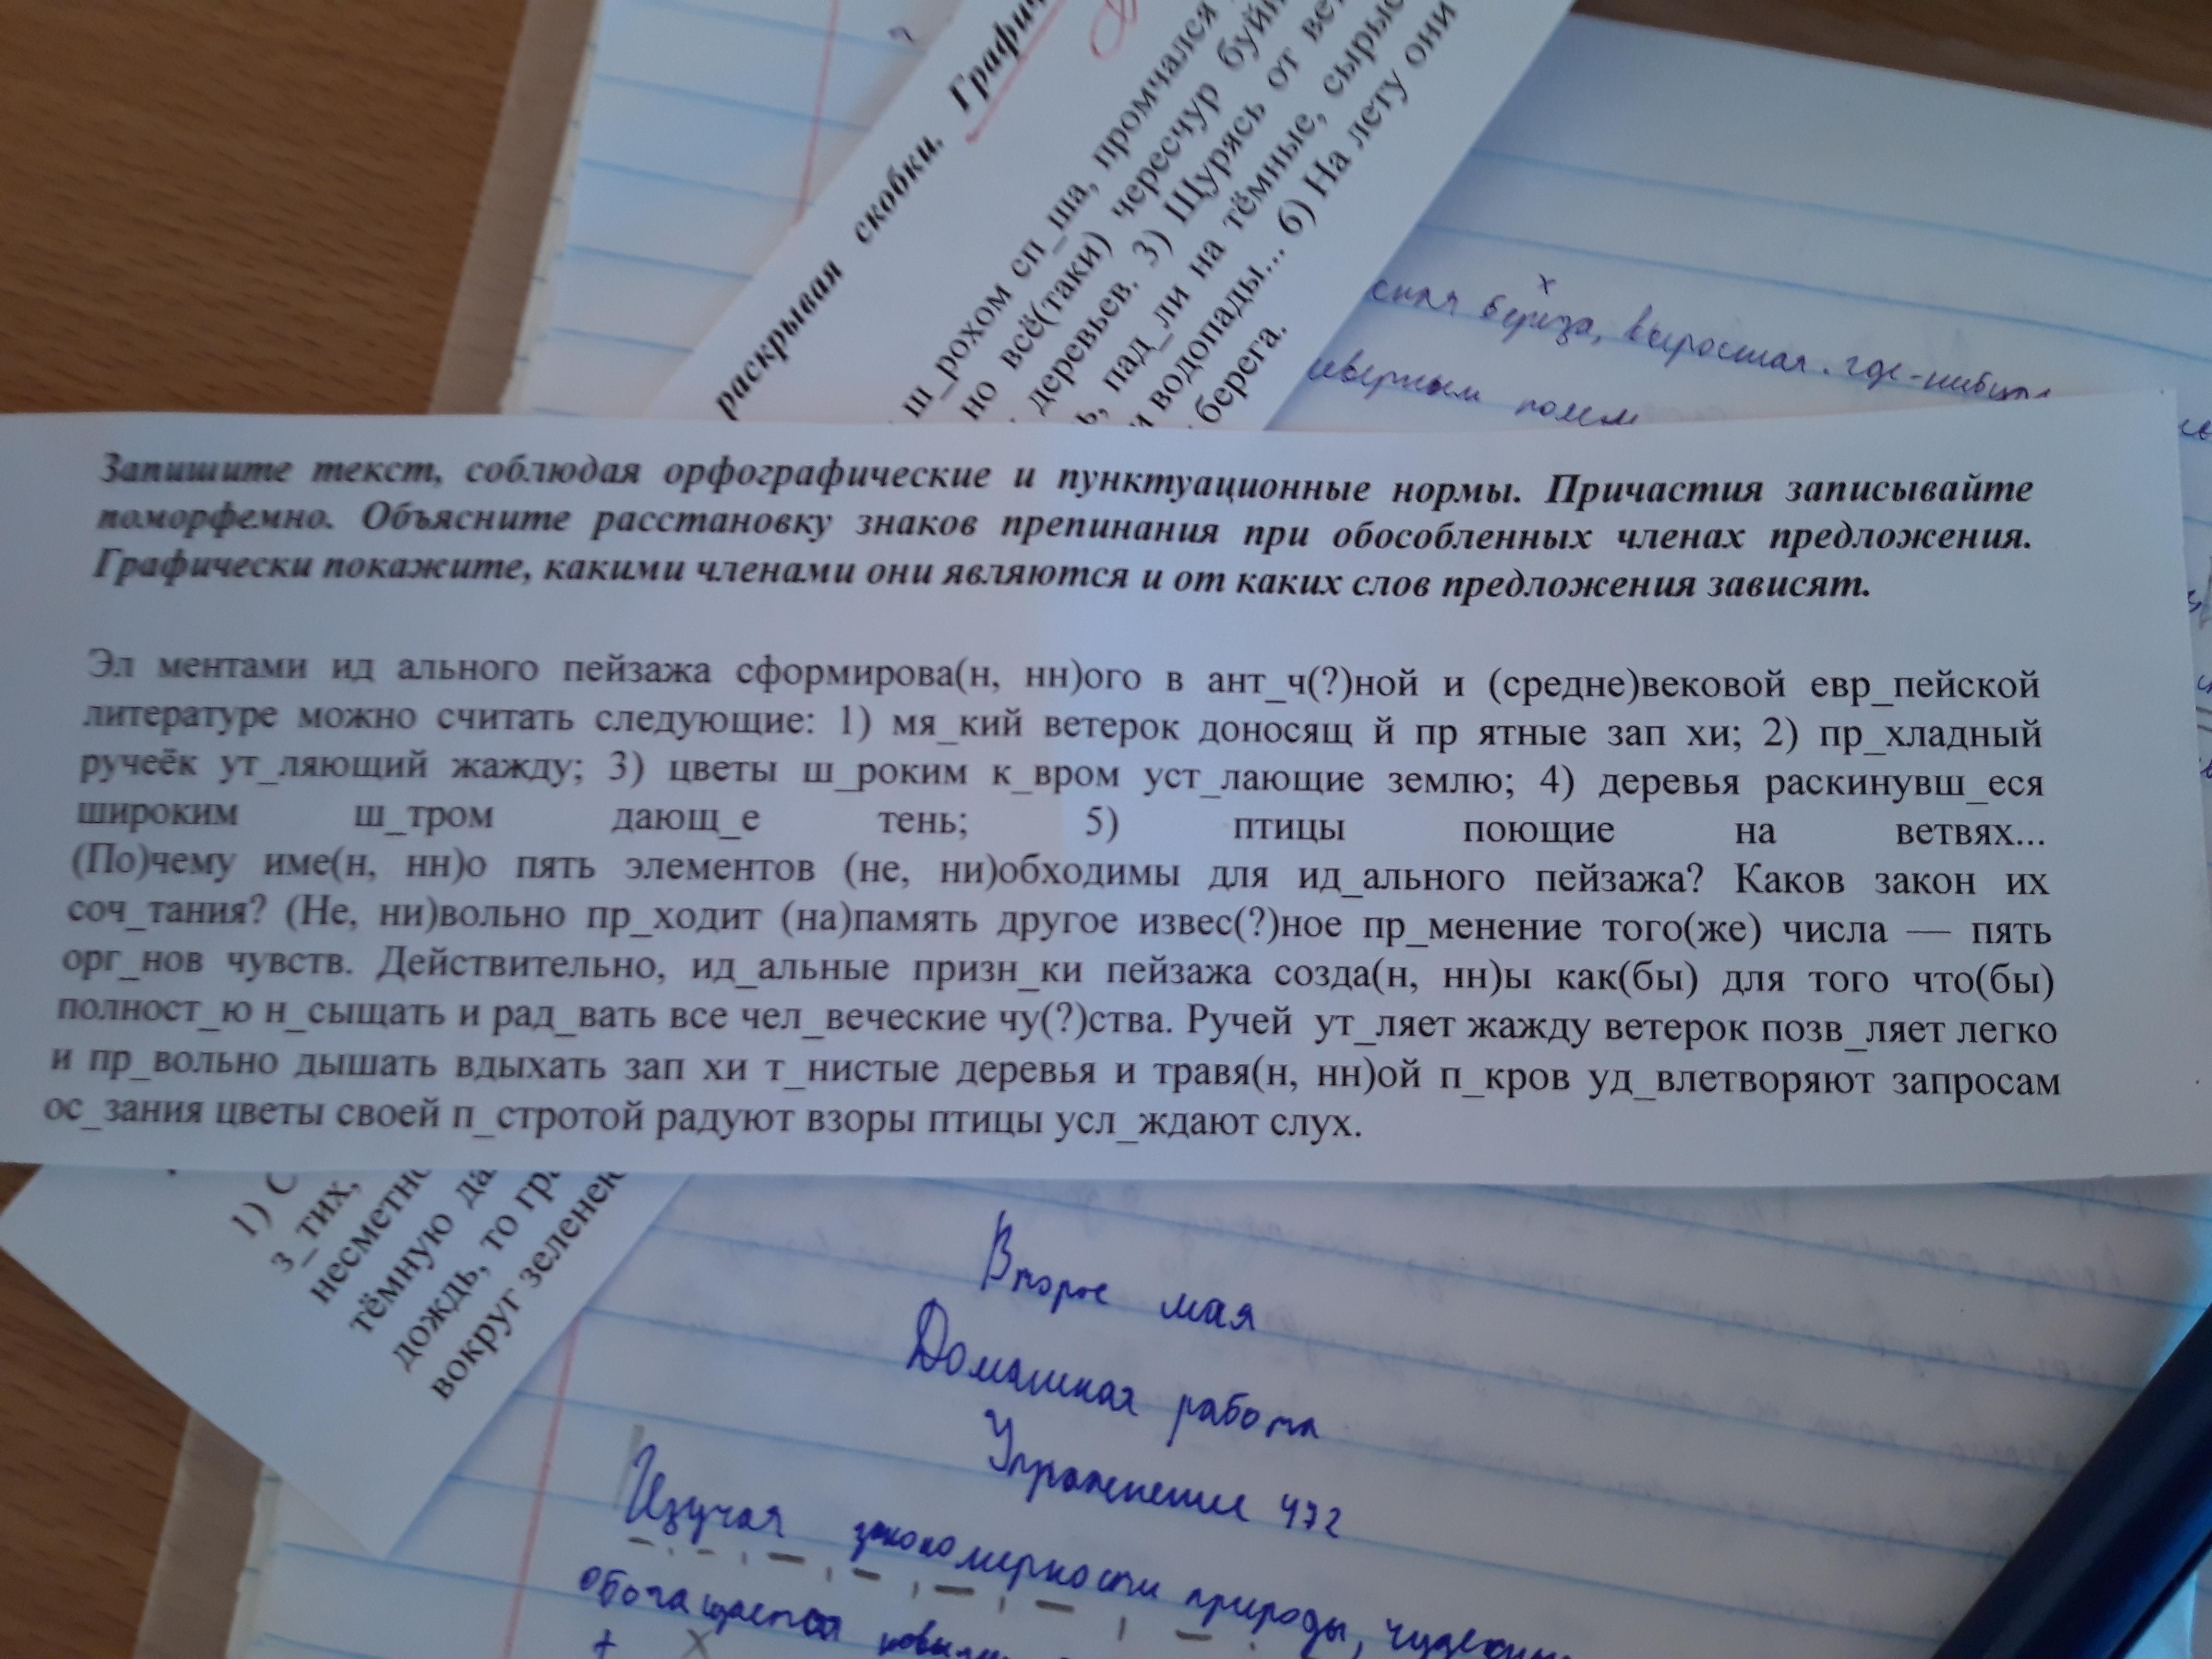 раскрывая скобки. Графич
ш_рохом сп_ша, промчался
но всё(таки) чересчур буйн
деревьев. 3) Щурясь от ве
ь, пад_ли на тёмные, сырые
и водопады... 6) На лету они
берега.
сная береза, выросшая где-нибудь
северным полем
Запишите текст, соблюдая орфографические и пунктуационные нормы. Причастия записывайте
поморфемно. Объясните расстановку знаков препинания при обособленных членах предложения.
Графически покажите, какими членами они являются и от каких слов предложения зависят.
Эл ментами ид ального пейзажа сформирова(н, нн)ого в ант_ч(?)ной и (средне)вековой евр_пейской
литературе можно считать следующие: 1) мя_кий ветерок доносящ й пр ятные зап хи; 2) пр_хладный
ручеёк ут_ляющий жажду; 3) цветы ш_роким к_вром уст_лающие землю; 4) деревья раскинувш_еся
широким ш_тром дающ_е тень; 5) птицы поющие на ветвях...
(По)чему име(н, нн)о пять элементов (не, ни)обходимы для ид_ального пейзажа? Каков закон их
соч_тания? (Не, ни)вольно пр_ходит (на)память другое извес(?)ное пр_менение того(же) числа — пять
орг_нов чувств. Действительно, ид_альные призн_ки пейзажа созда(н, нн)ы как(бы) для того что(бы)
полност_ю н_сыщать и рад_вать все чел_веческие чу(?)ства. Ручей ут_ляет жажду ветерок позв_ляет легко
и пр_вольно дышать вдыхать зап хи т_нистые деревья и травя(н, нн)ой п_кров уд_влетворяют запросам
ос_зания цветы своей п_стротой радуют взоры птицы усл_ждают слух.
1) С
з_тих,
несметно
тёмную да
дождь, то гра
вокруг зеленек
Второе мая
Домашняя работа
Упражнение 472
Изучая закономерности природы,
обогащается